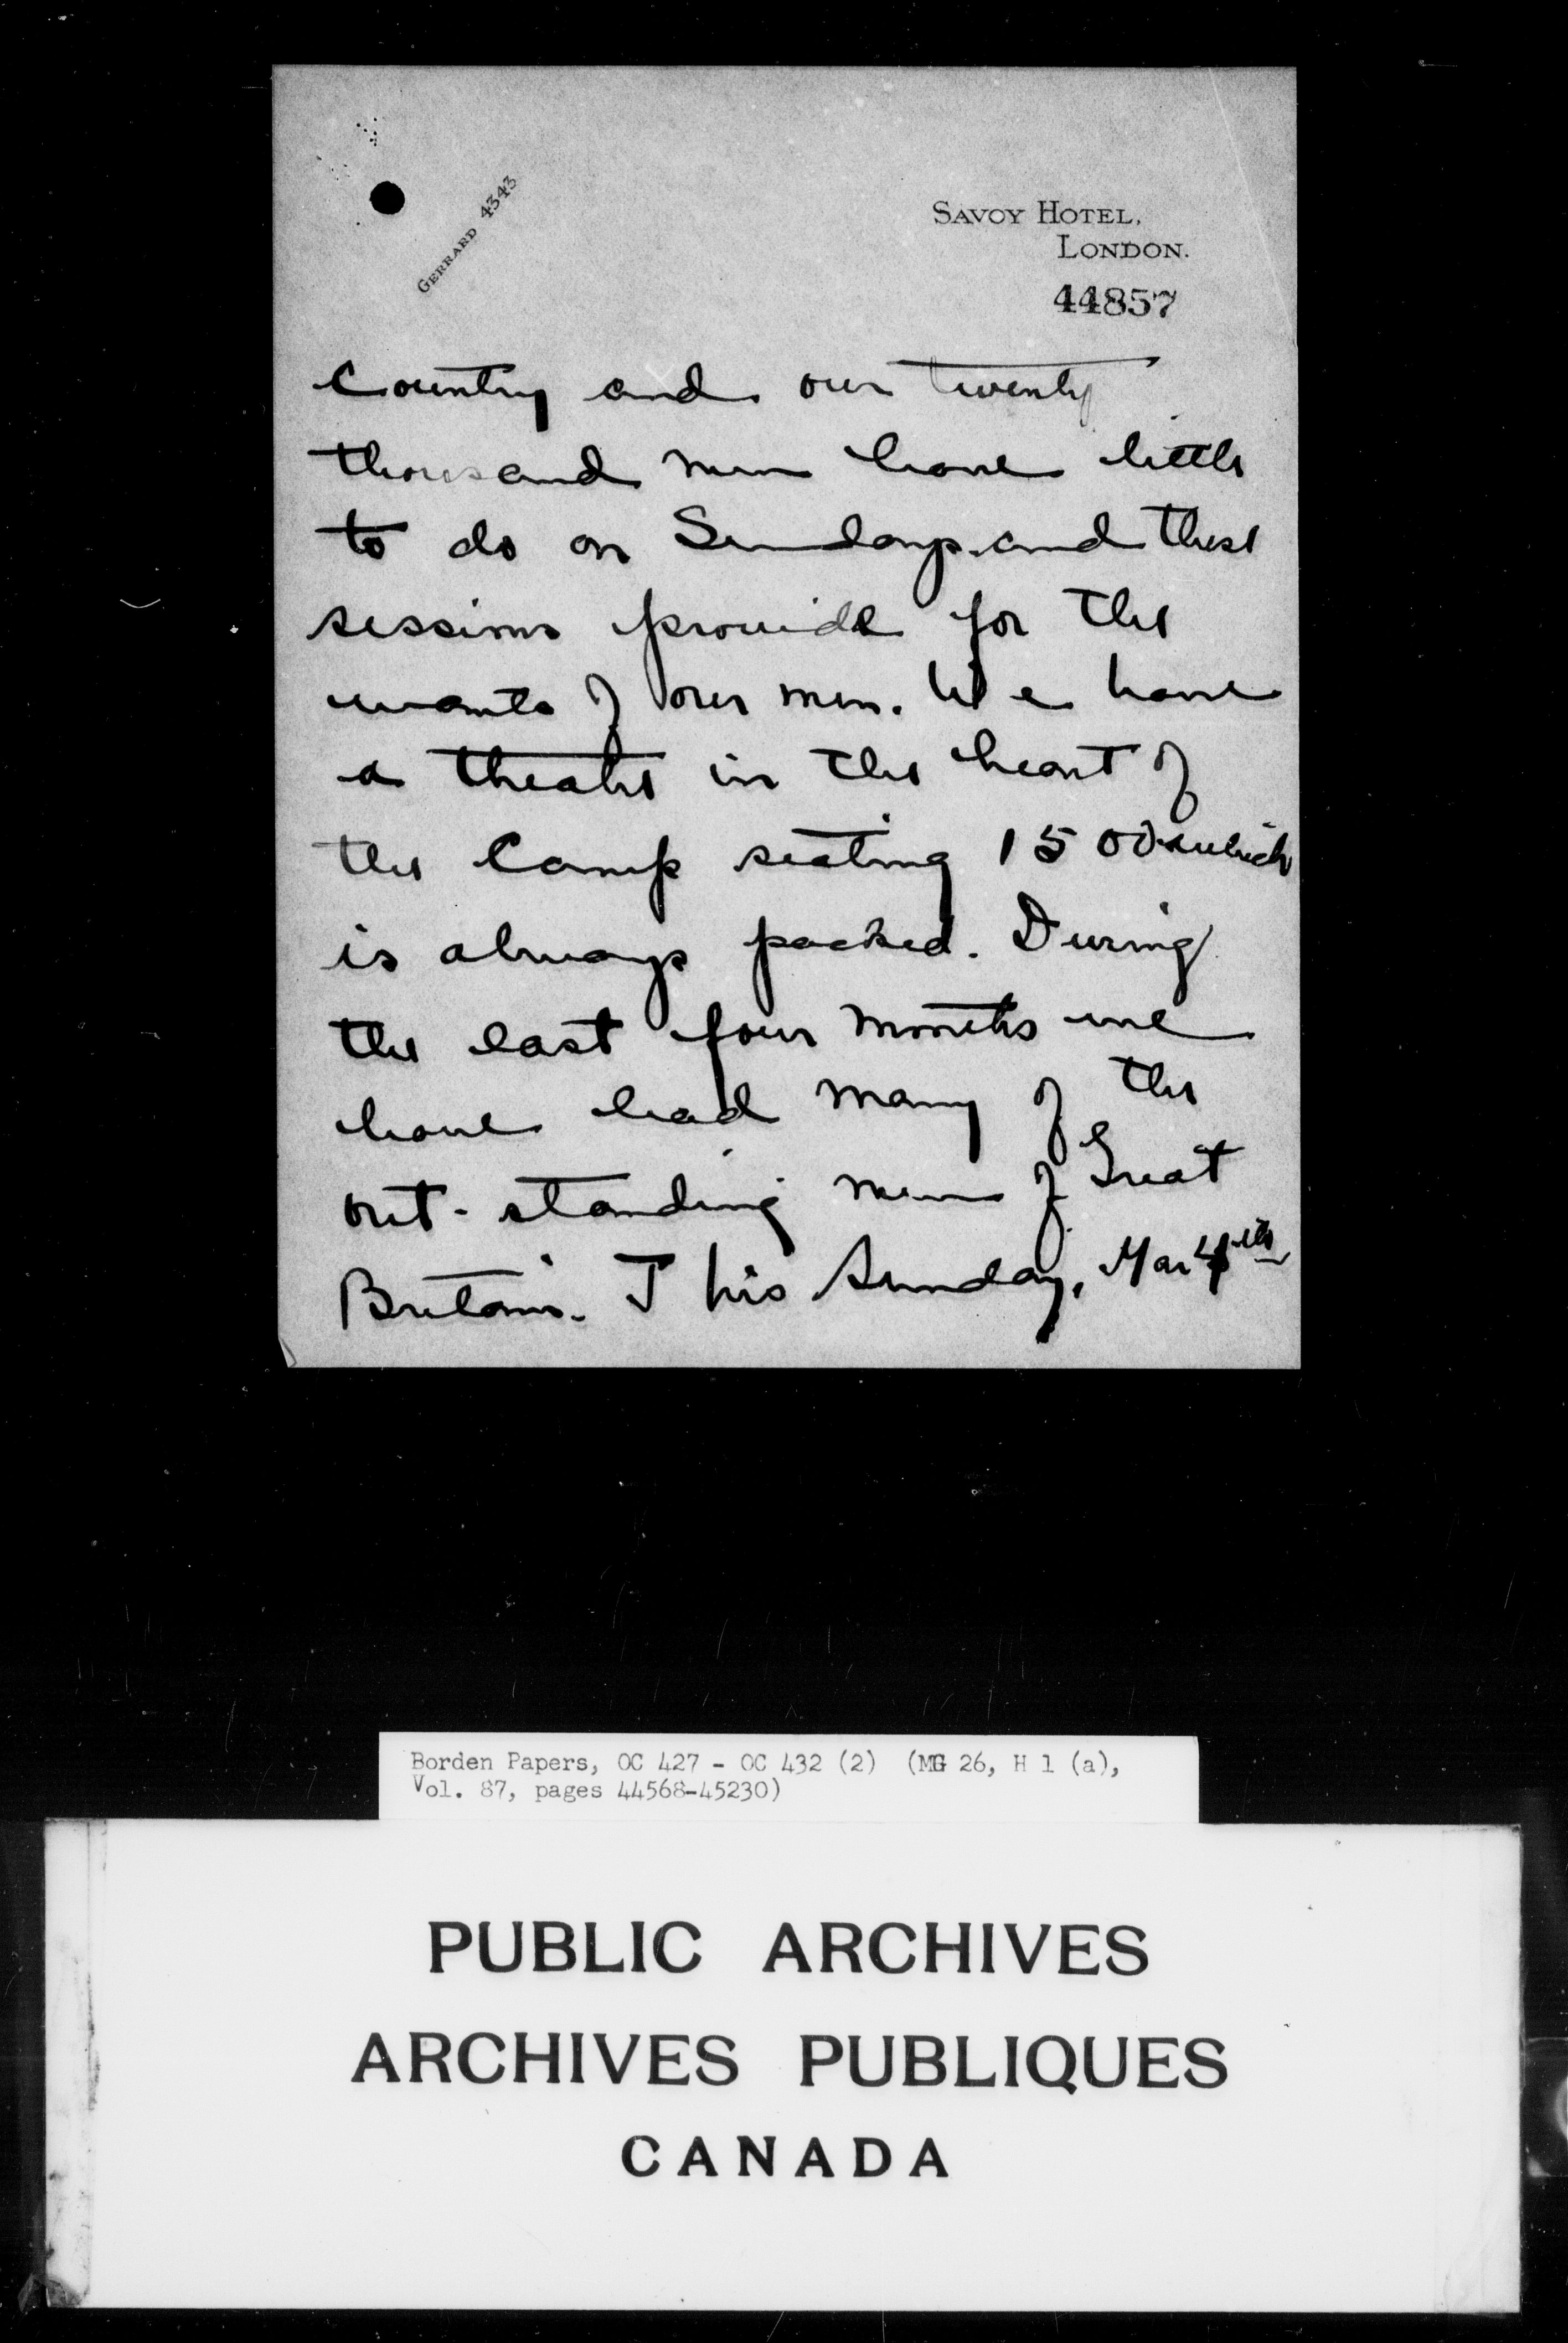 GERRARD 4343
SAVOY HOTEL,
LONDON.
44857
Country and our twenty
thousand men have little
to do on Sundays and these
sessions provide for the
wants of our men. We have
a theatre in the heart of
the Camp seating 1500 which
is always packed. During
the last four months we
have had many of the
out-standing men of Great
Britain. This Sunday, Mar 4th
Borden Papers, OC 427 - OC 432 (2) (MG 26, H 1 (a),
Vol. 87, pages 44568-45230)
PUBLIC ARCHIVES
ARCHIVES PUBLIQUES
CANADA